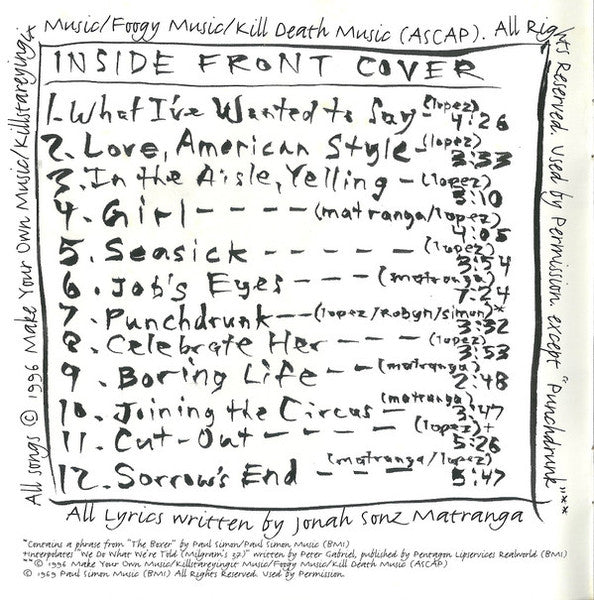 All songs © 1996 Make Your Own Music/Killstareyingit
Music/Foogy Music/Kill Death Music (ASCAP). All Rights Reserved. Used by Permission. except "Punchdrunk"**
INSIDE FRONT COVER
1. What I've Wanted to Say - (lopez) 4:26
2. Love, American Style - (lopez) 3:33
3. In the Aisle, Yelling - (lopez) 3:10
4. Girl - - - - (matranga/lopez) 4:05
5. Seasick - - - - - (lopez) 3:54
6. Job's Eyes - - - (matranga) 7:24
7. Punchdrunk - - (lopez/Robyn/simon)* 3:32
8. Celebrate Her - - - (lopez) 3:53
9. Boring Life - - (matranga) 2:48
10. Joining the Circus - (matranga) 3:47
11. Cut-Out - - - - - (lopez)+ 5:26
12. Sorrow's End - - - (matranga/lopez) 5:47
All Lyrics written by Jonah Sonz Matranga
*Contains a phrase from "The Boxer" by Paul Simon/Paul Simon Music (BMI)
+interpolates "We Do What We're Told (Milgram's 37)" written by Peter Gabriel, published by Pentagon Lipservices Realworld (BMI)
**© 1996 Make Your Own Music/Killstareyingit Music/Foogy Music/Kill Death Music (ASCAP)
© 1969 Paul Simon Music (BMI) All Rights Reserved. Used by Permission.